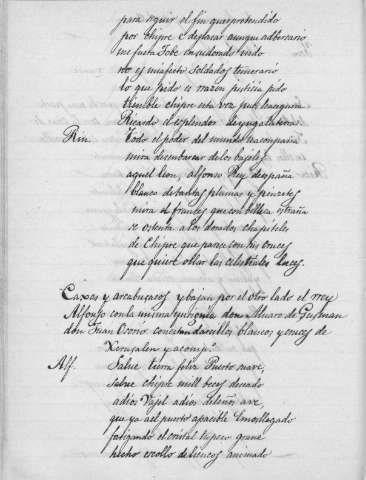 para seguir el fin que pretendido
por chipre e deseado aunque adbersario
me fuera Jobe en su dorado nido
no es mi afecto soldados temerario
lo que pido es razon justicia pido
tiemble chipre esta vez pues le asegura
Ricardo el esplendor de yngalaterra
Rin. Todo el poder del mundo te acompaña
mira desenbarcar de los bajeles
aquel leon, alfonso Rey despaña
blanco de tantas plumas y penceles
mira el frances que con belleza estraña
se ostenta a los dorados chapiteles
de Chipre que parece con sus cruces
que quiere ollar las celestiales luces.
Caxas y arcabuzasos y bajan por el otro lado el rrey
Alfonso con la misma don Albaro de Gusman
don Juan Osorio con estandartes blancos y cruces de
Xerusalen y acompº
Alf. Salue tierra felix Puerto suave,
salue chipre mill beces deseado
adios Vajel adios deleños ave
que ya ael puerto apacible has llegado
fatigando el cristal espero grave
hecho escollo de liensos animado